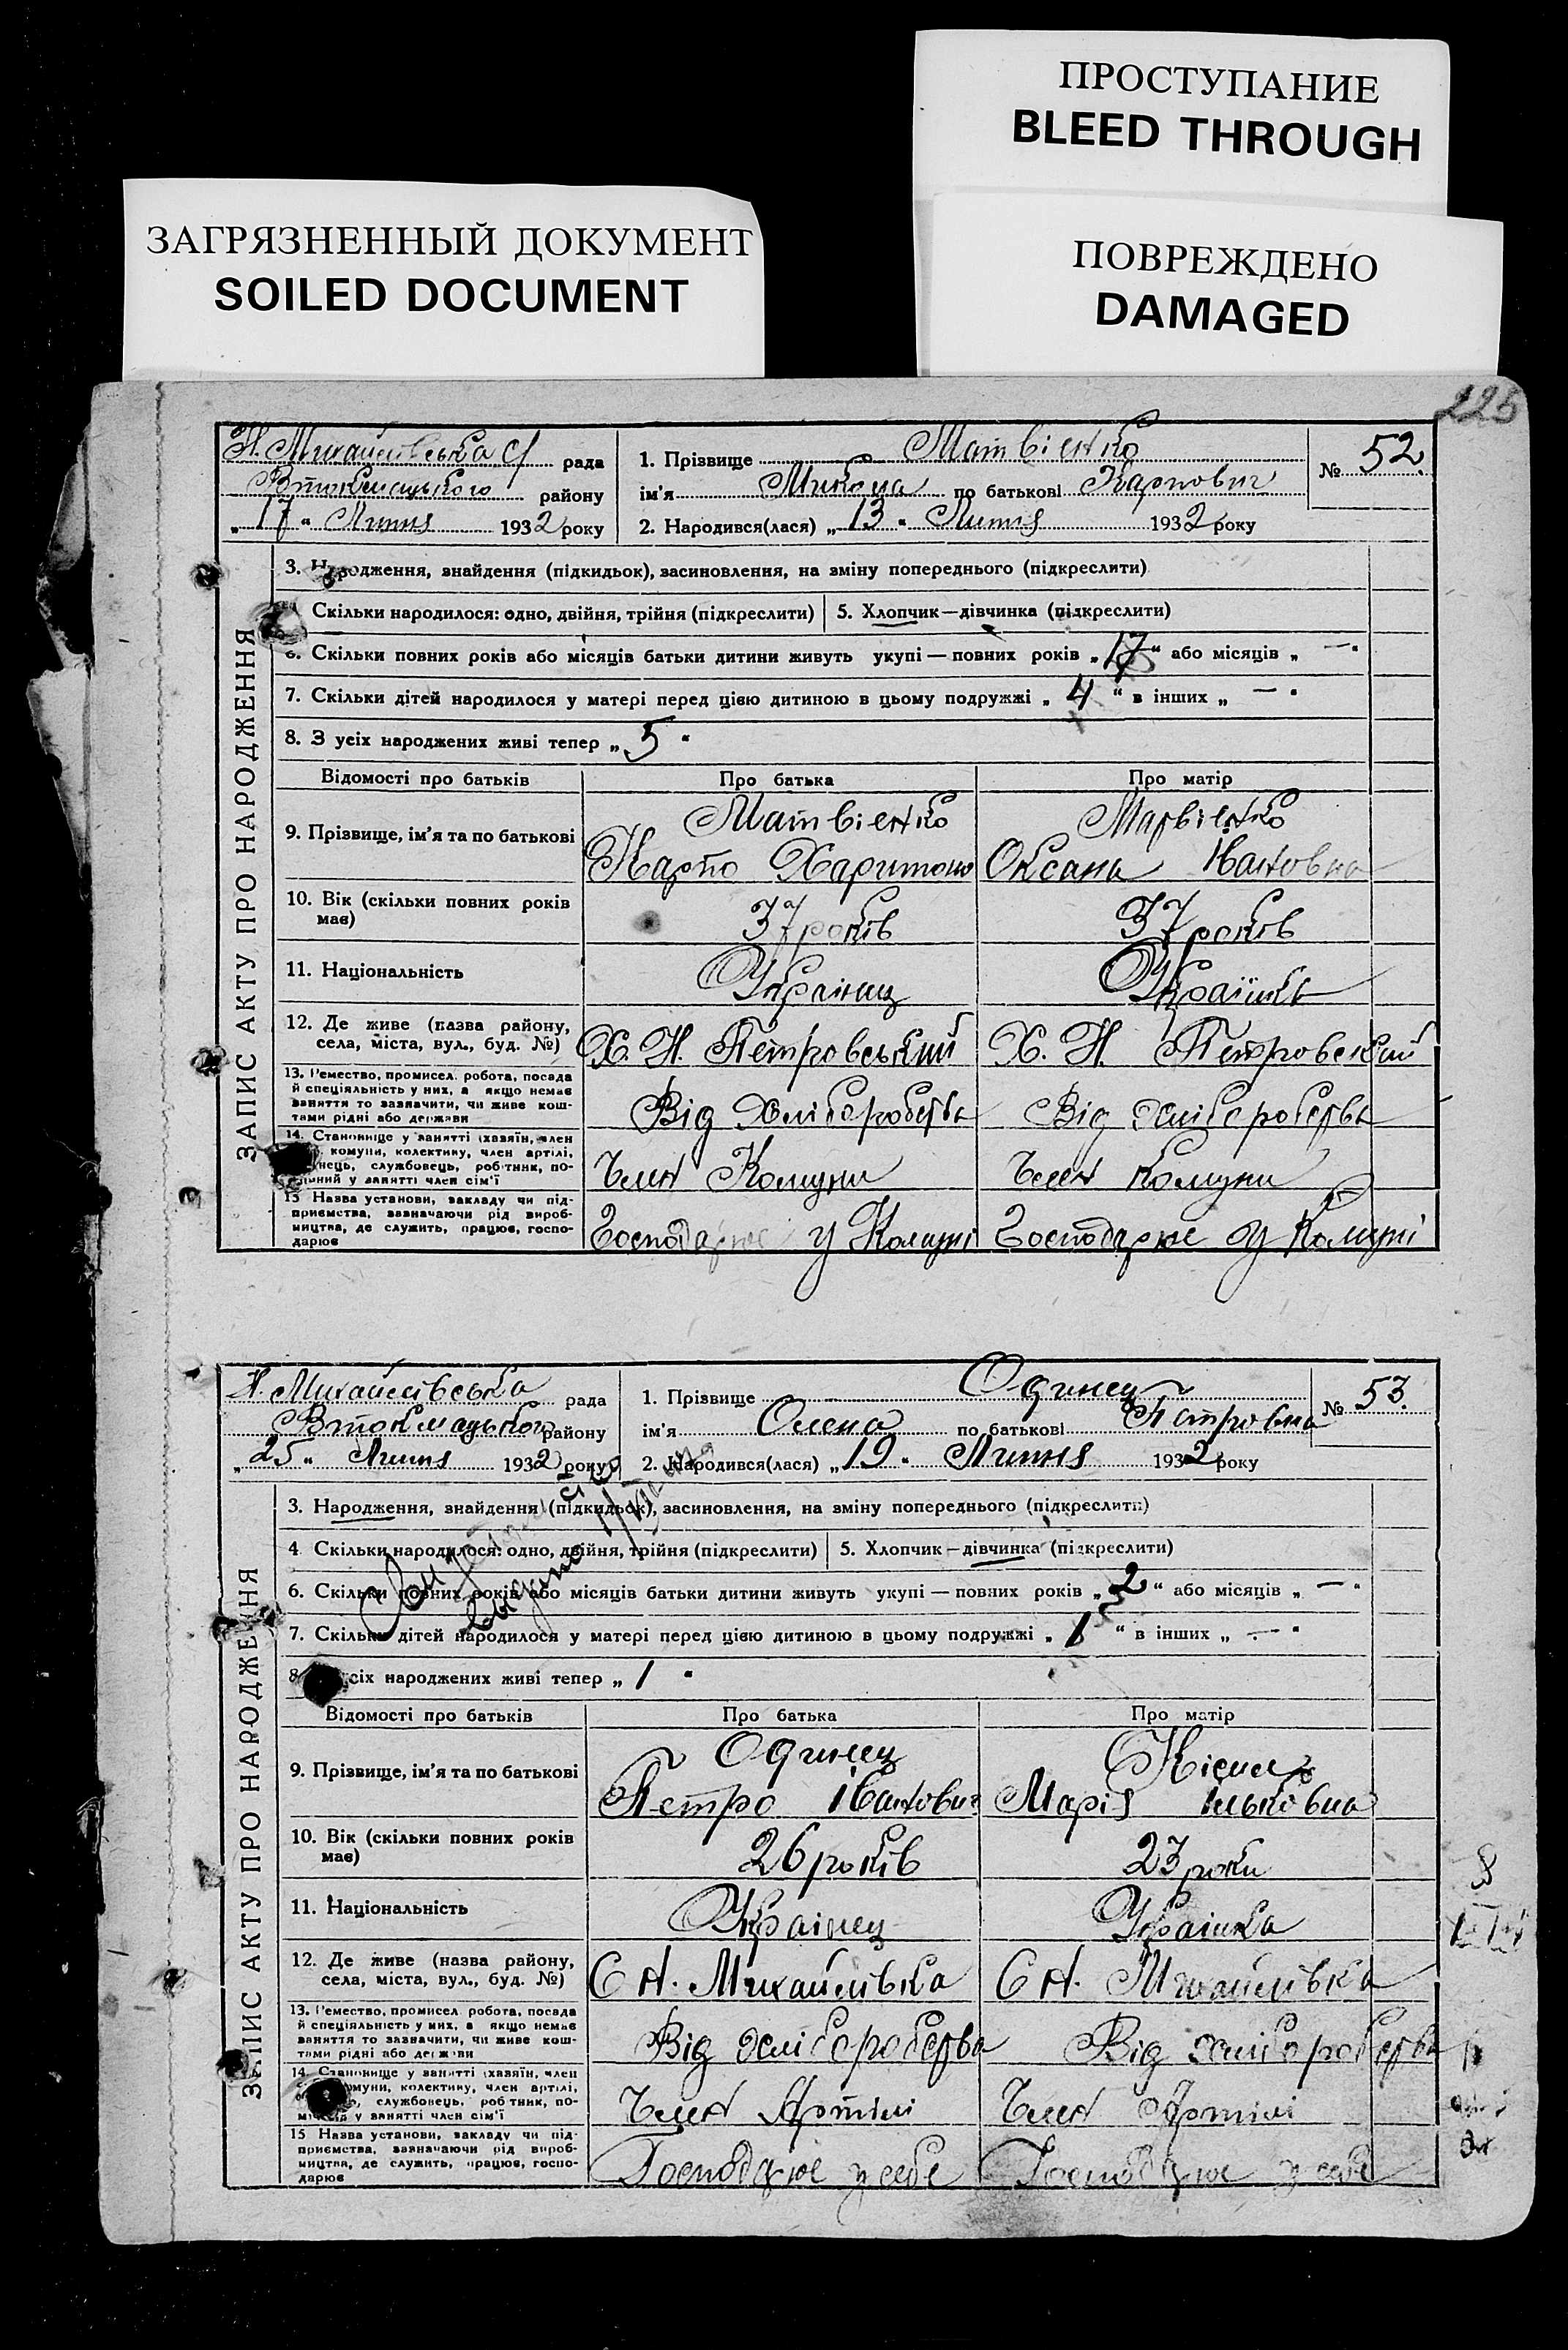 ПРОСТУПАНИЕ
BLEED THROUGH
ЗАГРЯЗНЕННЫЙ ДОКУМЕНТ
SOILED DOCUMENT
ПОВРЕЖДЕНО
DAMAGED
225
Н. Михайлівська С/ рада
Втокмацького району
„17“ Липня 1932 року
1. Прізвище Матвієнко
ім'я Микола по батькові Карпович
2. Народився(лася) „13“ Липня 1932 року
№ 52.
ЗАПИС АКТУ ПРО НАРОДЖЕННЯ
3. Народження, знайдення (підкидьок), засиновлення, на зміну попереднього (підкреслити)
Скільки народилося: одно, двійня, трійня (підкреслити) 5. Хлопчик—дівчинка (підкреслити)
6. Скільки повних років або місяців батьки дитини живуть укупі — повних років „17“ або місяців „—“
7. Скільки дітей народилося у матері перед цією дитиною в цьому подружжі „4“ в інших „—“
8. З усіх народжених живі тепер „5“
Відомості про батьків Про батька Про матір
9. Прізвище, ім'я та по батькові
Матвієнко
Карпо Харитоно
Матвієнко
Оксана Івановна
10. Вік (скільки повних років має) 37 років 37 років
11. Національність Українец Українка
12. Де живе (назва району, села, міста, вул., буд. №) Х. Н. Петровський Х. Н. Петровский
13. Ремество, промисел, робота, посада
й спеціяльність у них, а якщо немає
заняття то зазначити, чи живе кош-
тами рідні або держави
Від Хліборобства Від хліборобства
14. Становище у занятті (хазяїн, член
комуни, колективу, член артілі,
службовець, робітник, по-
у занятті член сім'ї
Член Комуни Член Комуни
15 Назва установи, закладу чи під-
приємства, зазначаючи рід вироб-
ництва, де служить, працює, госпо-
дарює
Господарює у Комуні Господарює у Комуні
Н. Михайлівська рада
Втокмацького району
„25“ Липня 1932 року
1. Прізвище Одинец
ім'я Олена по батькові Петровна
2. Народився(лася) „19“ Липня 1932 року
№ 53.
ЗАПИС АКТУ ПРО НАРОДЖЕННЯ
3. Народження, знайдення (підкидьок), засиновлення, на зміну попереднього (підкреслити)
4 Скільки народилося: одно, двійня, трійня (підкреслити) 5. Хлопчик—дівчинка (підкреслити)
6. Скільки повних років або місяців батьки дитини живуть укупі — повних років „2“ або місяців „—“
7. Скільки дітей народилося у матері перед цією дитиною в цьому подружжі „1“ в інших „—“
8 усіх народжених живі тепер „1“
Відомості про батьків Про батька Про матір
9. Прізвище, ім'я та по батькові
Одинец
Петро Іванович
Марія Ільковна
10. Вік (скільки повних років має) 26 років 23 роки
11. Національність Українец Українка
12. Де живе (назва району, села, міста, вул., буд. №) С Н. Михайлівка С Н. Михайлівка
13. Ремество, промисел, робота, посада
й спеціяльність у них, а якщо немає
заняття то зазначити, чи живе кош-
тами рідні або держави
Від хліборобства Від хліборобства
14. Становище у занятті (хазяїн, член
комуни, колективу, член артілі,
службовець, робітник, по-
у занятті член сім'ї
Член Артілі Член Артілі
15 Назва установи, закладу чи під-
приємства, зазначаючи рід вироб-
ництва, де служить, працює, госпо-
дарює
Господарює у себе Господарює у себе